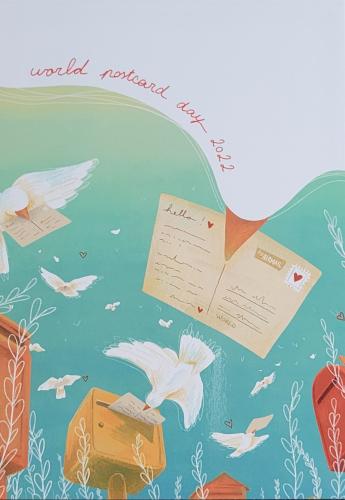 world postcard day 2022
hello!
WORLD